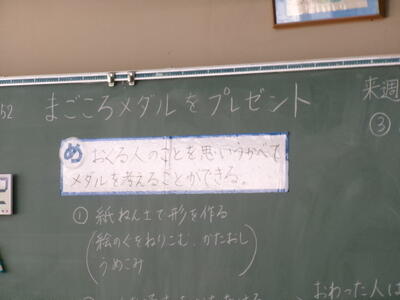 52 まごころメダルをプレゼント
来週
③
め おくる人のことを思いうかべて
メダルを考えることができる。
① 紙ねん土で形を作る
(絵のぐをねりこむ、かたおし
うめこみ)
おわった人は